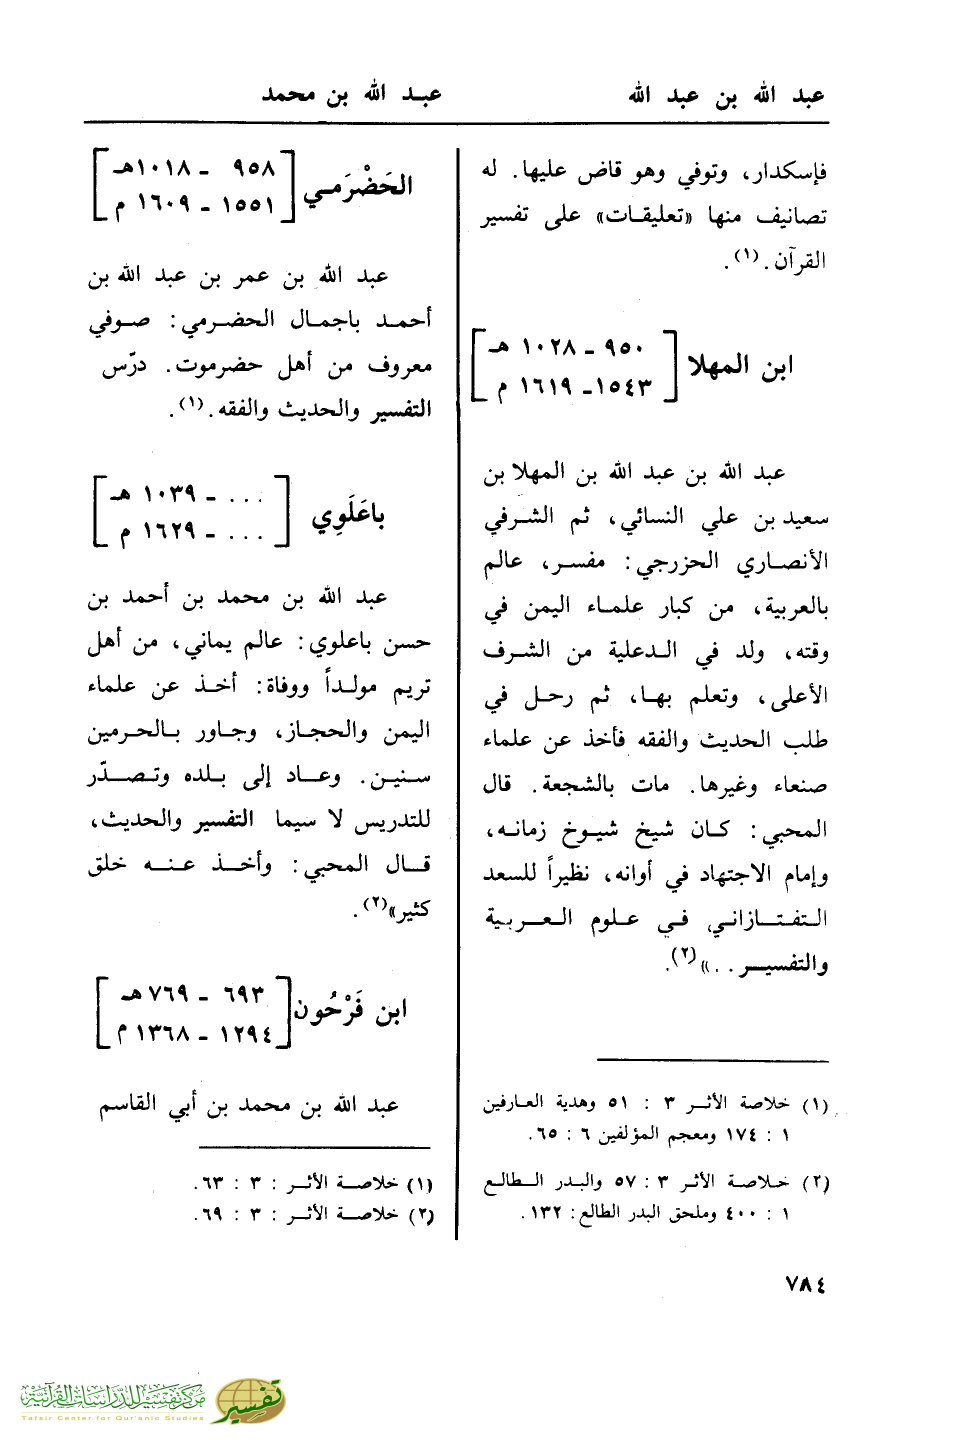 عبد الله بن عبد الله
عبد الله بن محمد
فإسكدار، وتوفي وهو قاض عليها. له
تصانيف منها «تعليقات» على تفسير
القرآن.(١).
ابن المهلا
[٩٥٠ - ١٠٢٨ هـ
١٥٤٣ - ١٦١٩ م]
عبد الله بن عبد الله بن المهلا بن
سعيد بن علي النسائي، ثم الشرفي
الأنصاري الخزرجي: مفسر، عالم
بالعربية، من كبار علماء اليمن في
وقته، ولد في الدعلية من الشرف
الأعلى، وتعلم بها، ثم رحل في
طلب الحديث والفقه فأخذ عن علماء
صنعاء وغيرها. مات بالشجعة. قال
المحبي: كان شيخ شيوخ زمانه،
وإمام الاجتهاد في أوانه، نظيراً للسعد
التفتازاني في علوم العربية
والتفسير..»(٢).
(١) خلاصة الأثر ٣ : ٥١ وهدية العارفين
١ : ١٧٤ ومعجم المؤلفين ٦ : ٦٥.
(٢) خلاصة الأثر ٣ : ٥٧ والبدر الطالع
١ : ٤٠٠ وملحق البدر الطالع: ١٣٢.
الحَضْرَمي
[٩٥٨ - ١٠١٨هـ
١٥٥١ - ١٦٠٩ م]
عبد الله بن عمر بن عبد الله بن
أحمد باجمال الحضرمي: صوفي
معروف من أهل حضرموت. درّس
التفسير والحديث والفقه.(١).
باعَلَوِي
[... - ١٠٣٩ هـ
... - ١٦٢٩ م]
عبد الله بن محمد بن أحمد بن
حسن باعلوي: عالم يماني، من أهل
تريم مولداً ووفاة: أخذ عن علماء
اليمن والحجاز، وجاور بالحرمين
سنين. وعاد إلى بلده وتصدّر
للتدريس لا سيما التفسير والحديث،
قال المحبي: وأخذ عنه خلق
كثير»(٢).
ابن فَرْحُون
[٦٩٣ - ٧٦٩هـ
١٢٩٤ - ١٣٦٨ م]
عبد الله بن محمد بن أبي القاسم
(١) خلاصة الأثر : ٣ : ٦٣.
(٢) خلاصة الأثر : ٣ : ٦٩.
٧٨٤
مركز تفسير للدراسات القرآنية
Tafsir Center for Qur'anic Studies
تفسير